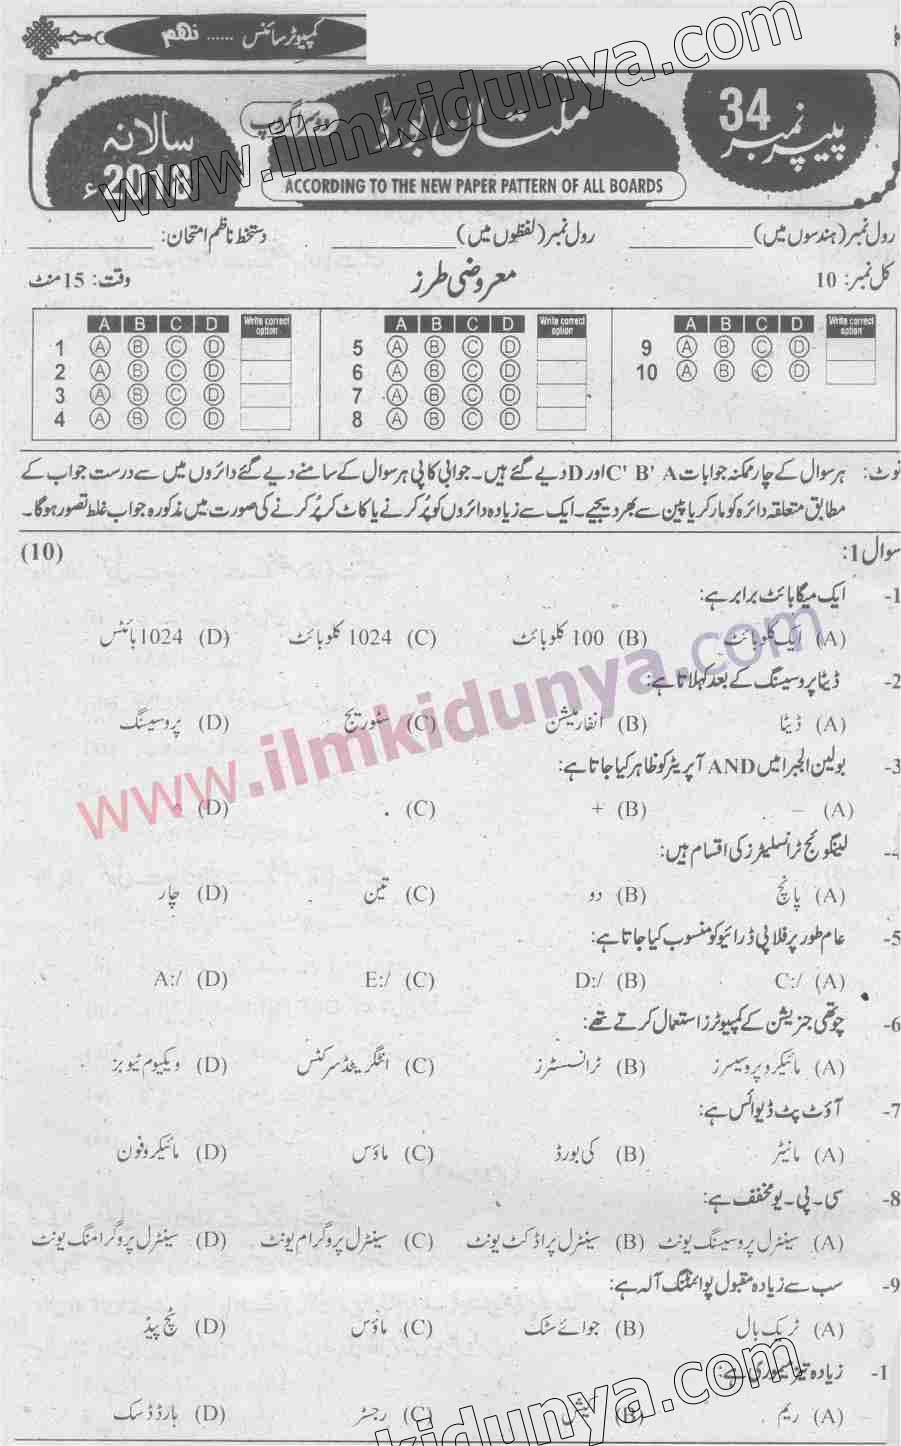 کمپیوٹر سائنس ...... نہم
پیپر نمبر 34
ملتان بورڈ
دوسرا گروپ
سالانہ 2018ء
ACCORDING TO THE NEW PAPER PATTERN OF ALL BOARDS
www.ilmkidunya.com
رول نمبر (ہندسوں میں) ____________ رول نمبر (لفظوں میں) ____________ دستخط ناظم امتحان: ____________
کل نمبر: 10 معروضی طرز وقت: 15 منٹ
A B C D Write correct option A B C D Write correct option A B C D Write correct option
1 A B C D 5 A B C D 9 A B C D
2 A B C D 6 A B C D 10 A B C D
3 A B C D 7 A B C D
4 A B C D 8 A B C D
نوٹ: ہر سوال کے چار ممکنہ جوابات A 'B 'C اور D دیے گئے ہیں۔ جوابی کاپی ہر سوال کے سامنے دیے گئے دائروں میں سے درست جواب کے
مطابق متعلقہ دائرہ کو مارکر یا پین سے بھر دیجیے۔ ایک سے زیادہ دائروں کو پُر کرنے یا کاٹ کر پُر کرنے کی صورت میں مذکورہ جواب غلط تصور ہوگا۔
سوال 1: (10)
1- ایک میگا بائٹ برابر ہے:
(A) ایک کلو بائٹ (B) 100 کلو بائٹ (C) 1024 کلو بائٹ (D) 1024 بائٹس
2- ڈیٹا پروسیسنگ کے بعد کہلاتا ہے:
(A) ڈیٹا (B) انفارمیشن (C) سٹوریج (D) پروسیسنگ
www.ilmkidunya.com
3- بولین الجبرا میں AND آپریٹر کو ظاہر کیا جاتا ہے:
(A) – (B) + (C) . (D)
4- لینگوئج ٹرانسلیٹرز کی اقسام ہیں:
(A) پانچ (B) دو (C) تین (D) چار
5- عام طور پر فلاپی ڈرائیو کو منسوب کیا جاتا ہے:
(A) C:/ (B) D:/ (C) E:/ (D) A:/
6- چوتھی جنریشن کے کمپیوٹرز استعمال کرتے تھے:
(A) مائیکرو پروسیسرز (B) ٹرانسسٹرز (C) انٹگریٹڈ سرکٹس (D) ویکیوم ٹیوبز
7- آؤٹ پٹ ڈیوائس ہے:
(A) مانیٹر (B) کی بورڈ (C) ماؤس (D) مائیکروفون
8- سی۔ پی۔ یو مخفف ہے:
(A) سینٹرل پروسیسنگ یونٹ (B) سینٹرل پراڈکٹ یونٹ (C) سینٹرل پروگرام یونٹ (D) سینٹرل پروگرامنگ یونٹ
9- سب سے زیادہ مقبول پوائنٹنگ آلہ ہے:
(A) ٹریک بال (B) جوائے سٹک (C) ماؤس (D) ٹچ پیڈ
1- زیادہ تیز میموری ہے:
(A) ریم (B) کیش (C) رجسٹر (D) ہارڈ ڈسک
kidunya.com